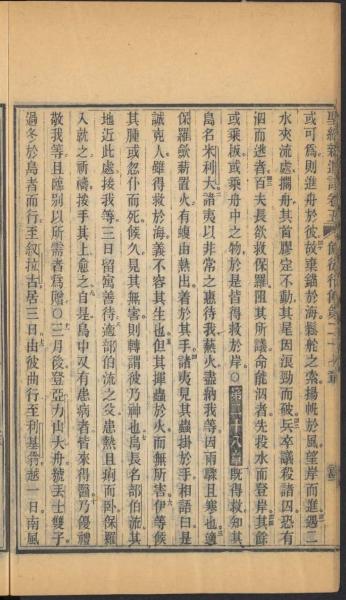 聖經新遺詔書卷五 使徒行傳第二十八章
或可爲則進舟於彼故棄錨於海鬆舵之索揚帆於風望岸而進遇二
水夾流處擱舟其首膠定不動其尾因浪勁而破兵卒議殺諸囚恐有
泅而逃者百夫長欲救保羅阻其所議命能泅者先投水而登岸其餘
或乘板或乘舟中之物於是皆得救於岸○第二十八章既得救知其
島名米利大諸夷以非常之惠待我蓺火盡納我等因雨驟且寒也適
保羅歛薪置火有蝮由熱出着於其手諸夷見其蟲掛於手相語曰是
誠克人雖得救於海義不容其生也但其揮蟲於火而無所害伊等候
其腫或忽仆而死候久見其無害則轉謂彼乃神也島長名部伯流其
地近此處接我等三日留寓善待適部伯流之父患熱且痢而卧保羅
入就之祈禱按手其上愈之自是島中又有患病者皆來得醫乃優禮
敬我等且臨别以所需者爲贈○三月後登亞力山大舟號丟士雙子
過冬於島者而行至叙拉古居三日由彼曲行至利基翁越一日南風